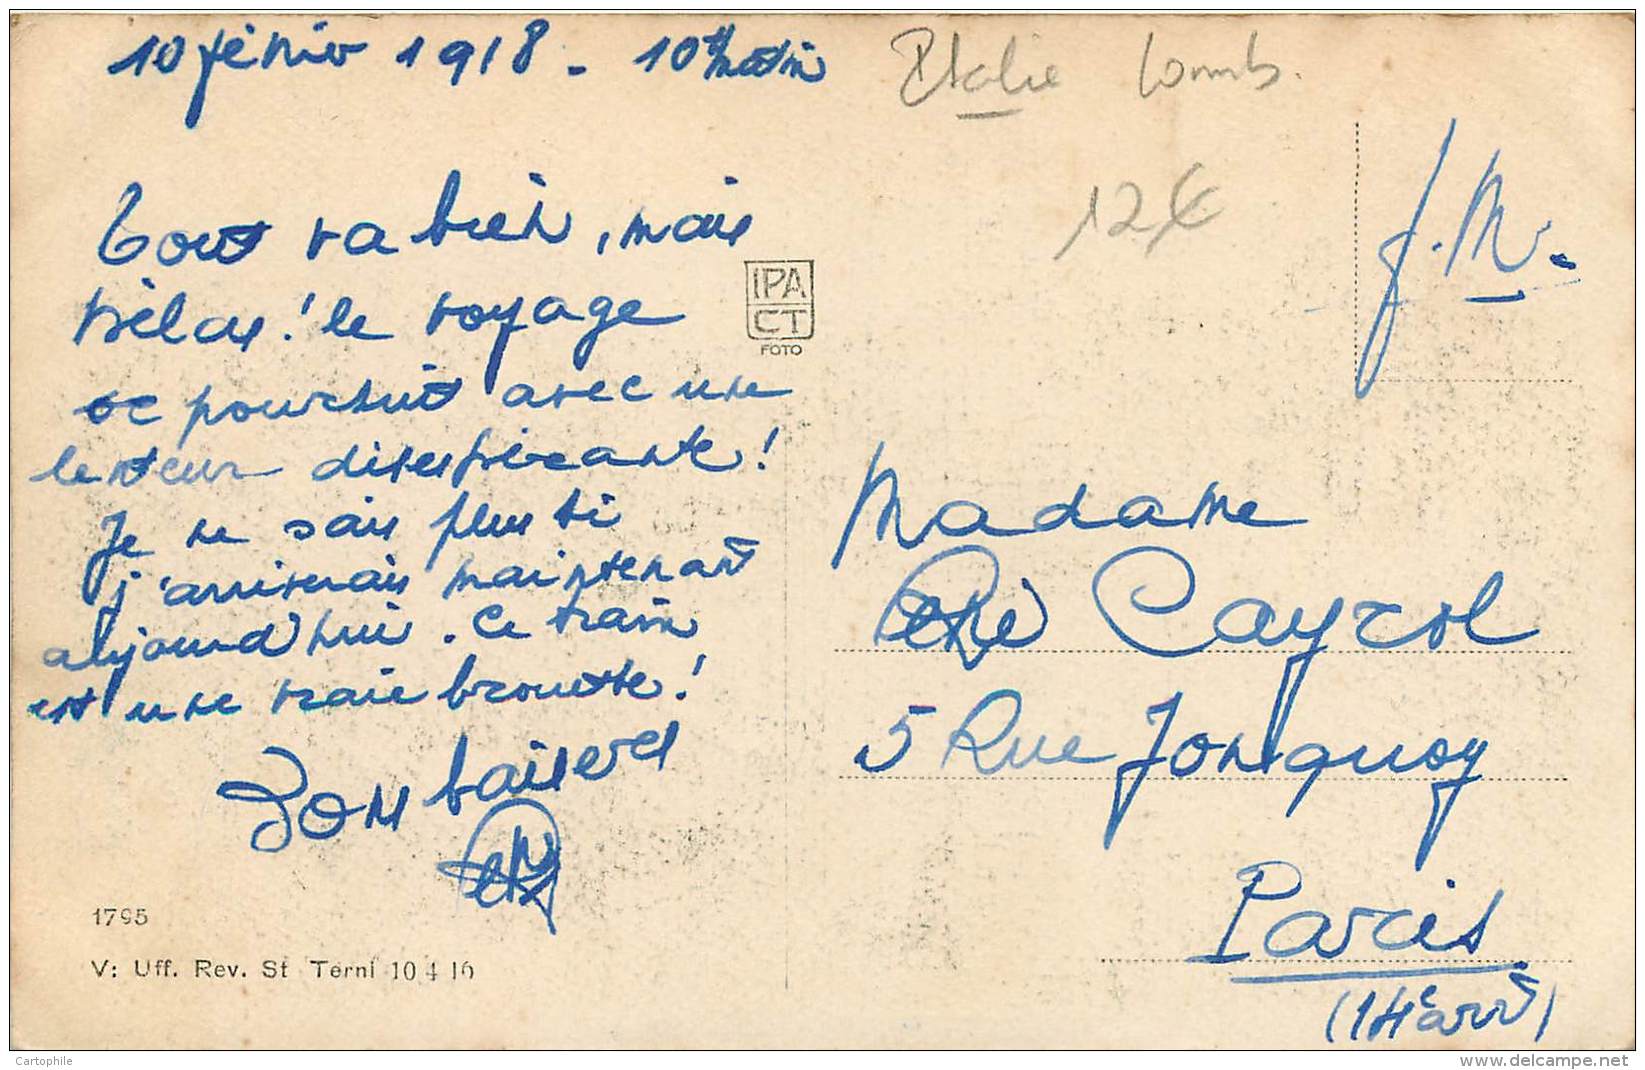 10 février 1918 - 10h matin
Italie Lomb.
12€
F. M.
Tout va bien, mais
hélas! le voyage
se poursuit avec une
lenteur désespérante!
Je ne sais plus si
j'arriverais maintenant
aujourd'hui. Ce train
est une vraie brouette!
Bons baisers
IPA
CT
FOTO
Madame
René Cayrol
5 Rue Jonquoy
Paris
(14e arrt)
1795
V: Uff. Rev. St Terni 10 4 16
Cartophile
delcampe.net